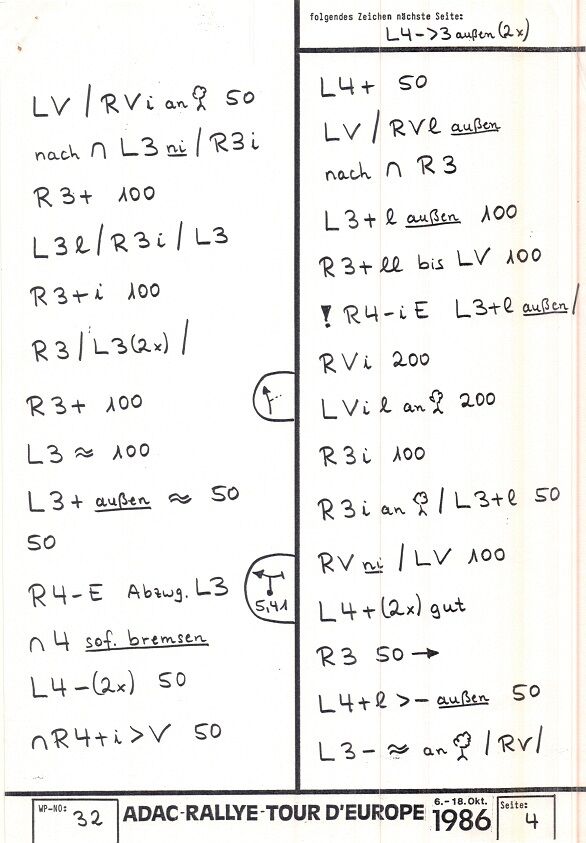 folgendes Zeichen nächste Seite:
L4->3 außen (2x)
LV / RVi an 50
nach ∩ L3 ni / R3i
R3+ 100
L3l / R3i / L3
R3+i 100
R3 / L3(2x) /
R3+ 100
L3 ≈ 100
L3+ außen ≈ 50
50
R4-E Abzwg. L3
5,41
∩4 sof. bremsen
L4-(2x) 50
∩R4+i>V 50
L4+ 50
LV / RVl außen
nach ∩ R3
L3+l außen 100
R3+ll bis LV 100
! R4-iE L3+l außen /
RVi 200
LVil an 200
R3i 100
R3i an / L3+l 50
RV ni / LV 100
L4+(2x) gut
R3 50 →
L4+l >- außen 50
L3- ≈ an / RV /
WP-NO: 32
ADAC-RALLYE-TOUR D'EUROPE
6.-18.Okt.
1986
Seite: 4